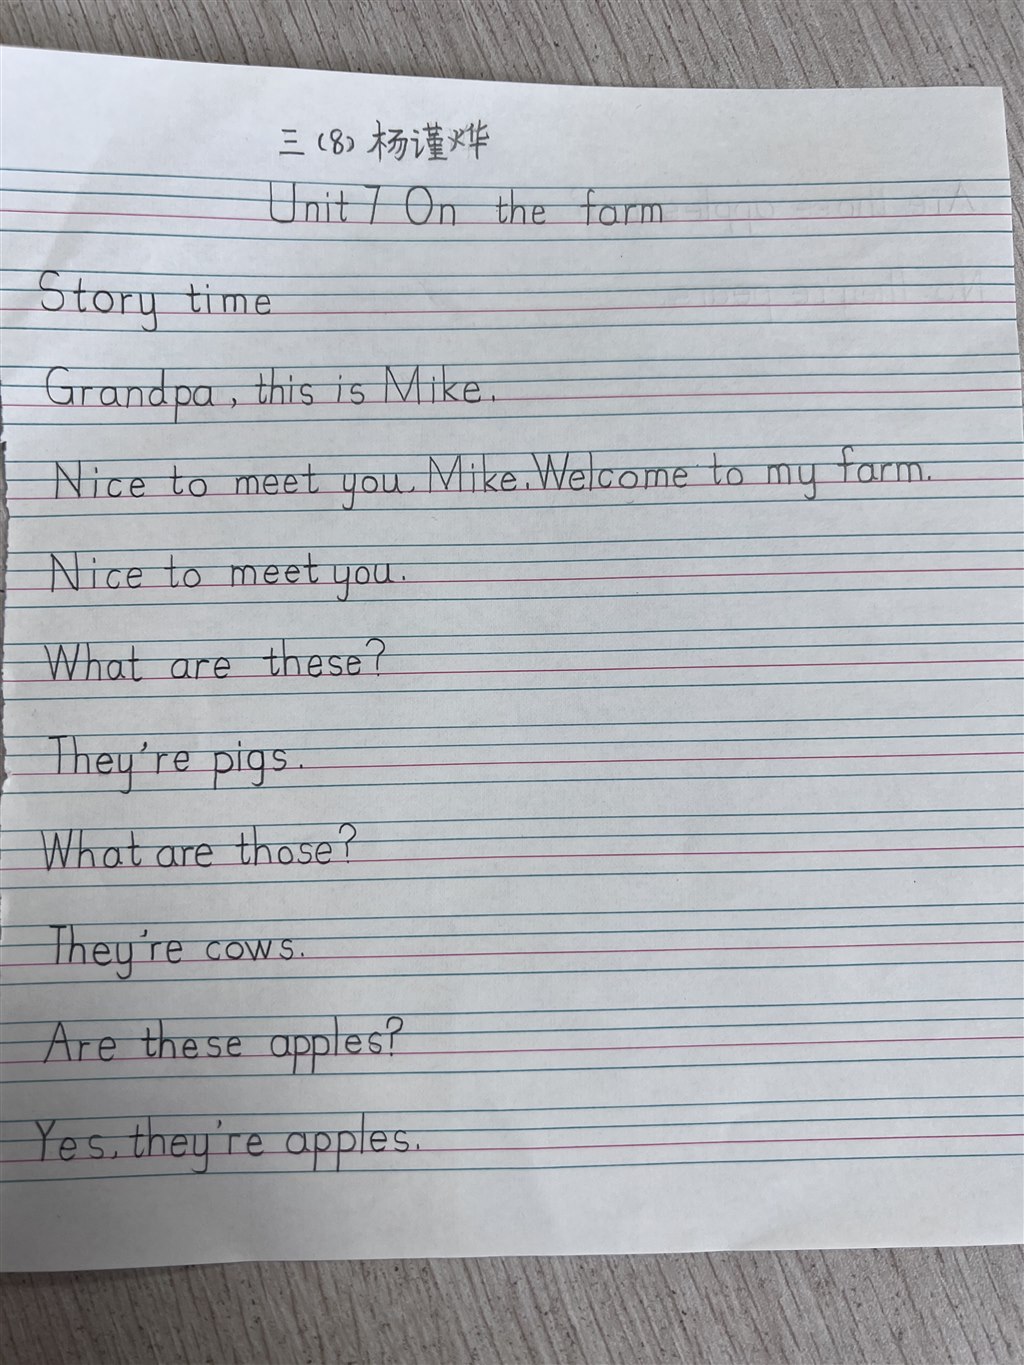 三（8）杨谨烨
Unit 7 On the farm
Story time
Grandpa, this is Mike.
Nice to meet you, Mike. Welcome to my farm.
Nice to meet you.
What are these?
They're pigs.
What are those?
They're cows.
Are these apples?
Yes, they're apples.